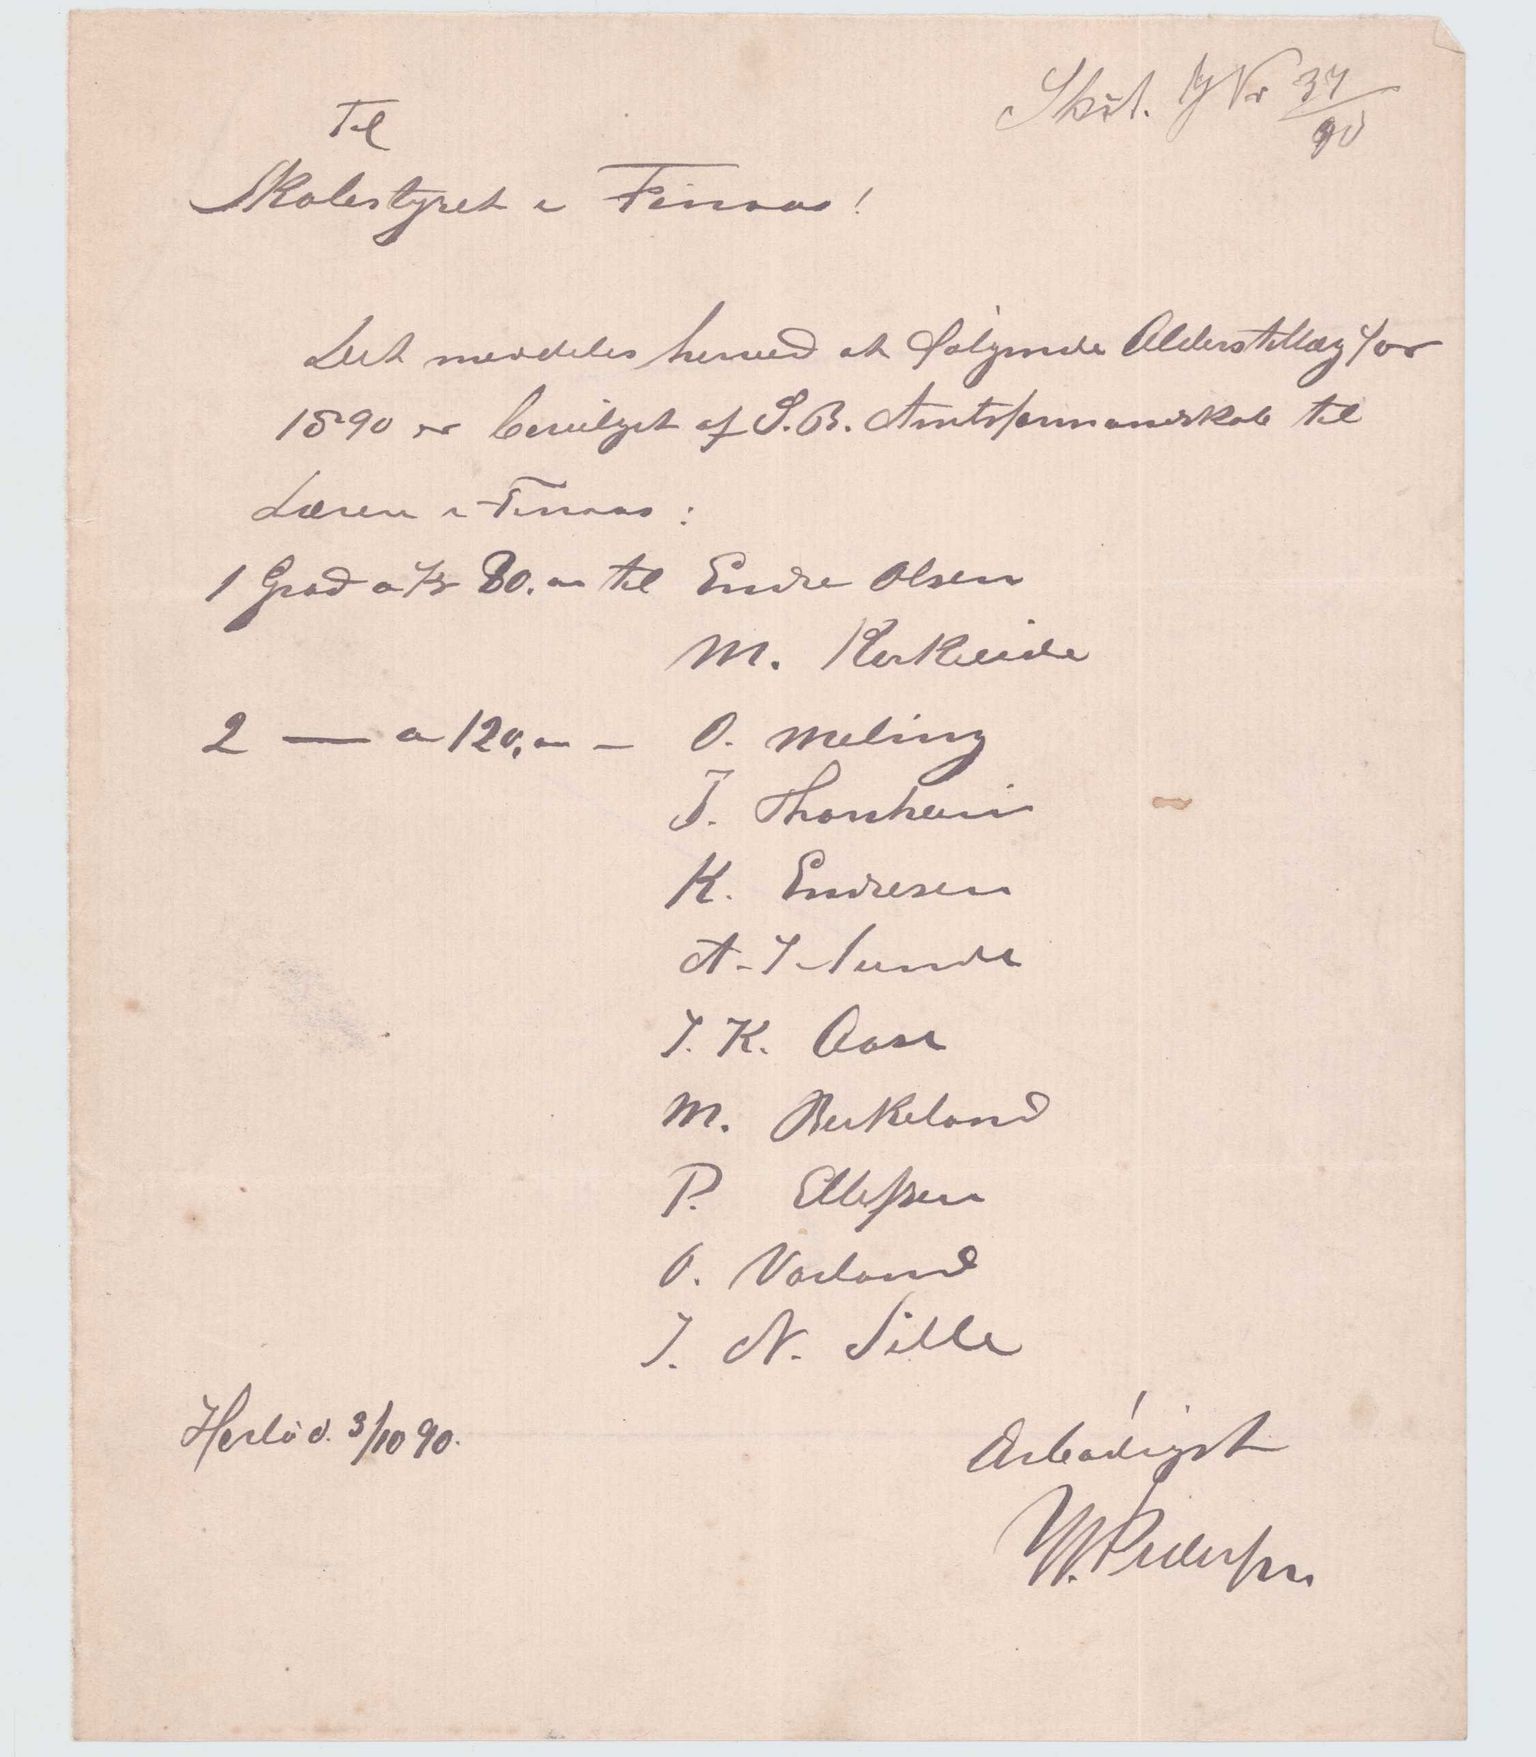 Skst. J Nr 37/90
Til
Skolestyret i Finnaas!
Det meddeles herved at følgende Alderstillæg for
1890 er bevilget af S. B. Amtsformandskab til
Lærere i Finnaas:
1 Grad a Kr 80.00 til Endre Olsen
M. Kirkeide
2 — a 120,00 — O. Meling
J. Thorsheim
K. Endresen
A. J. Sunde
J. K. Aase
M. Birkeland
P. Ellefsen
O. Vorland
J. N. Sille
Herlø d. 3/10 90.
Ærbødigst
M. Pedersen